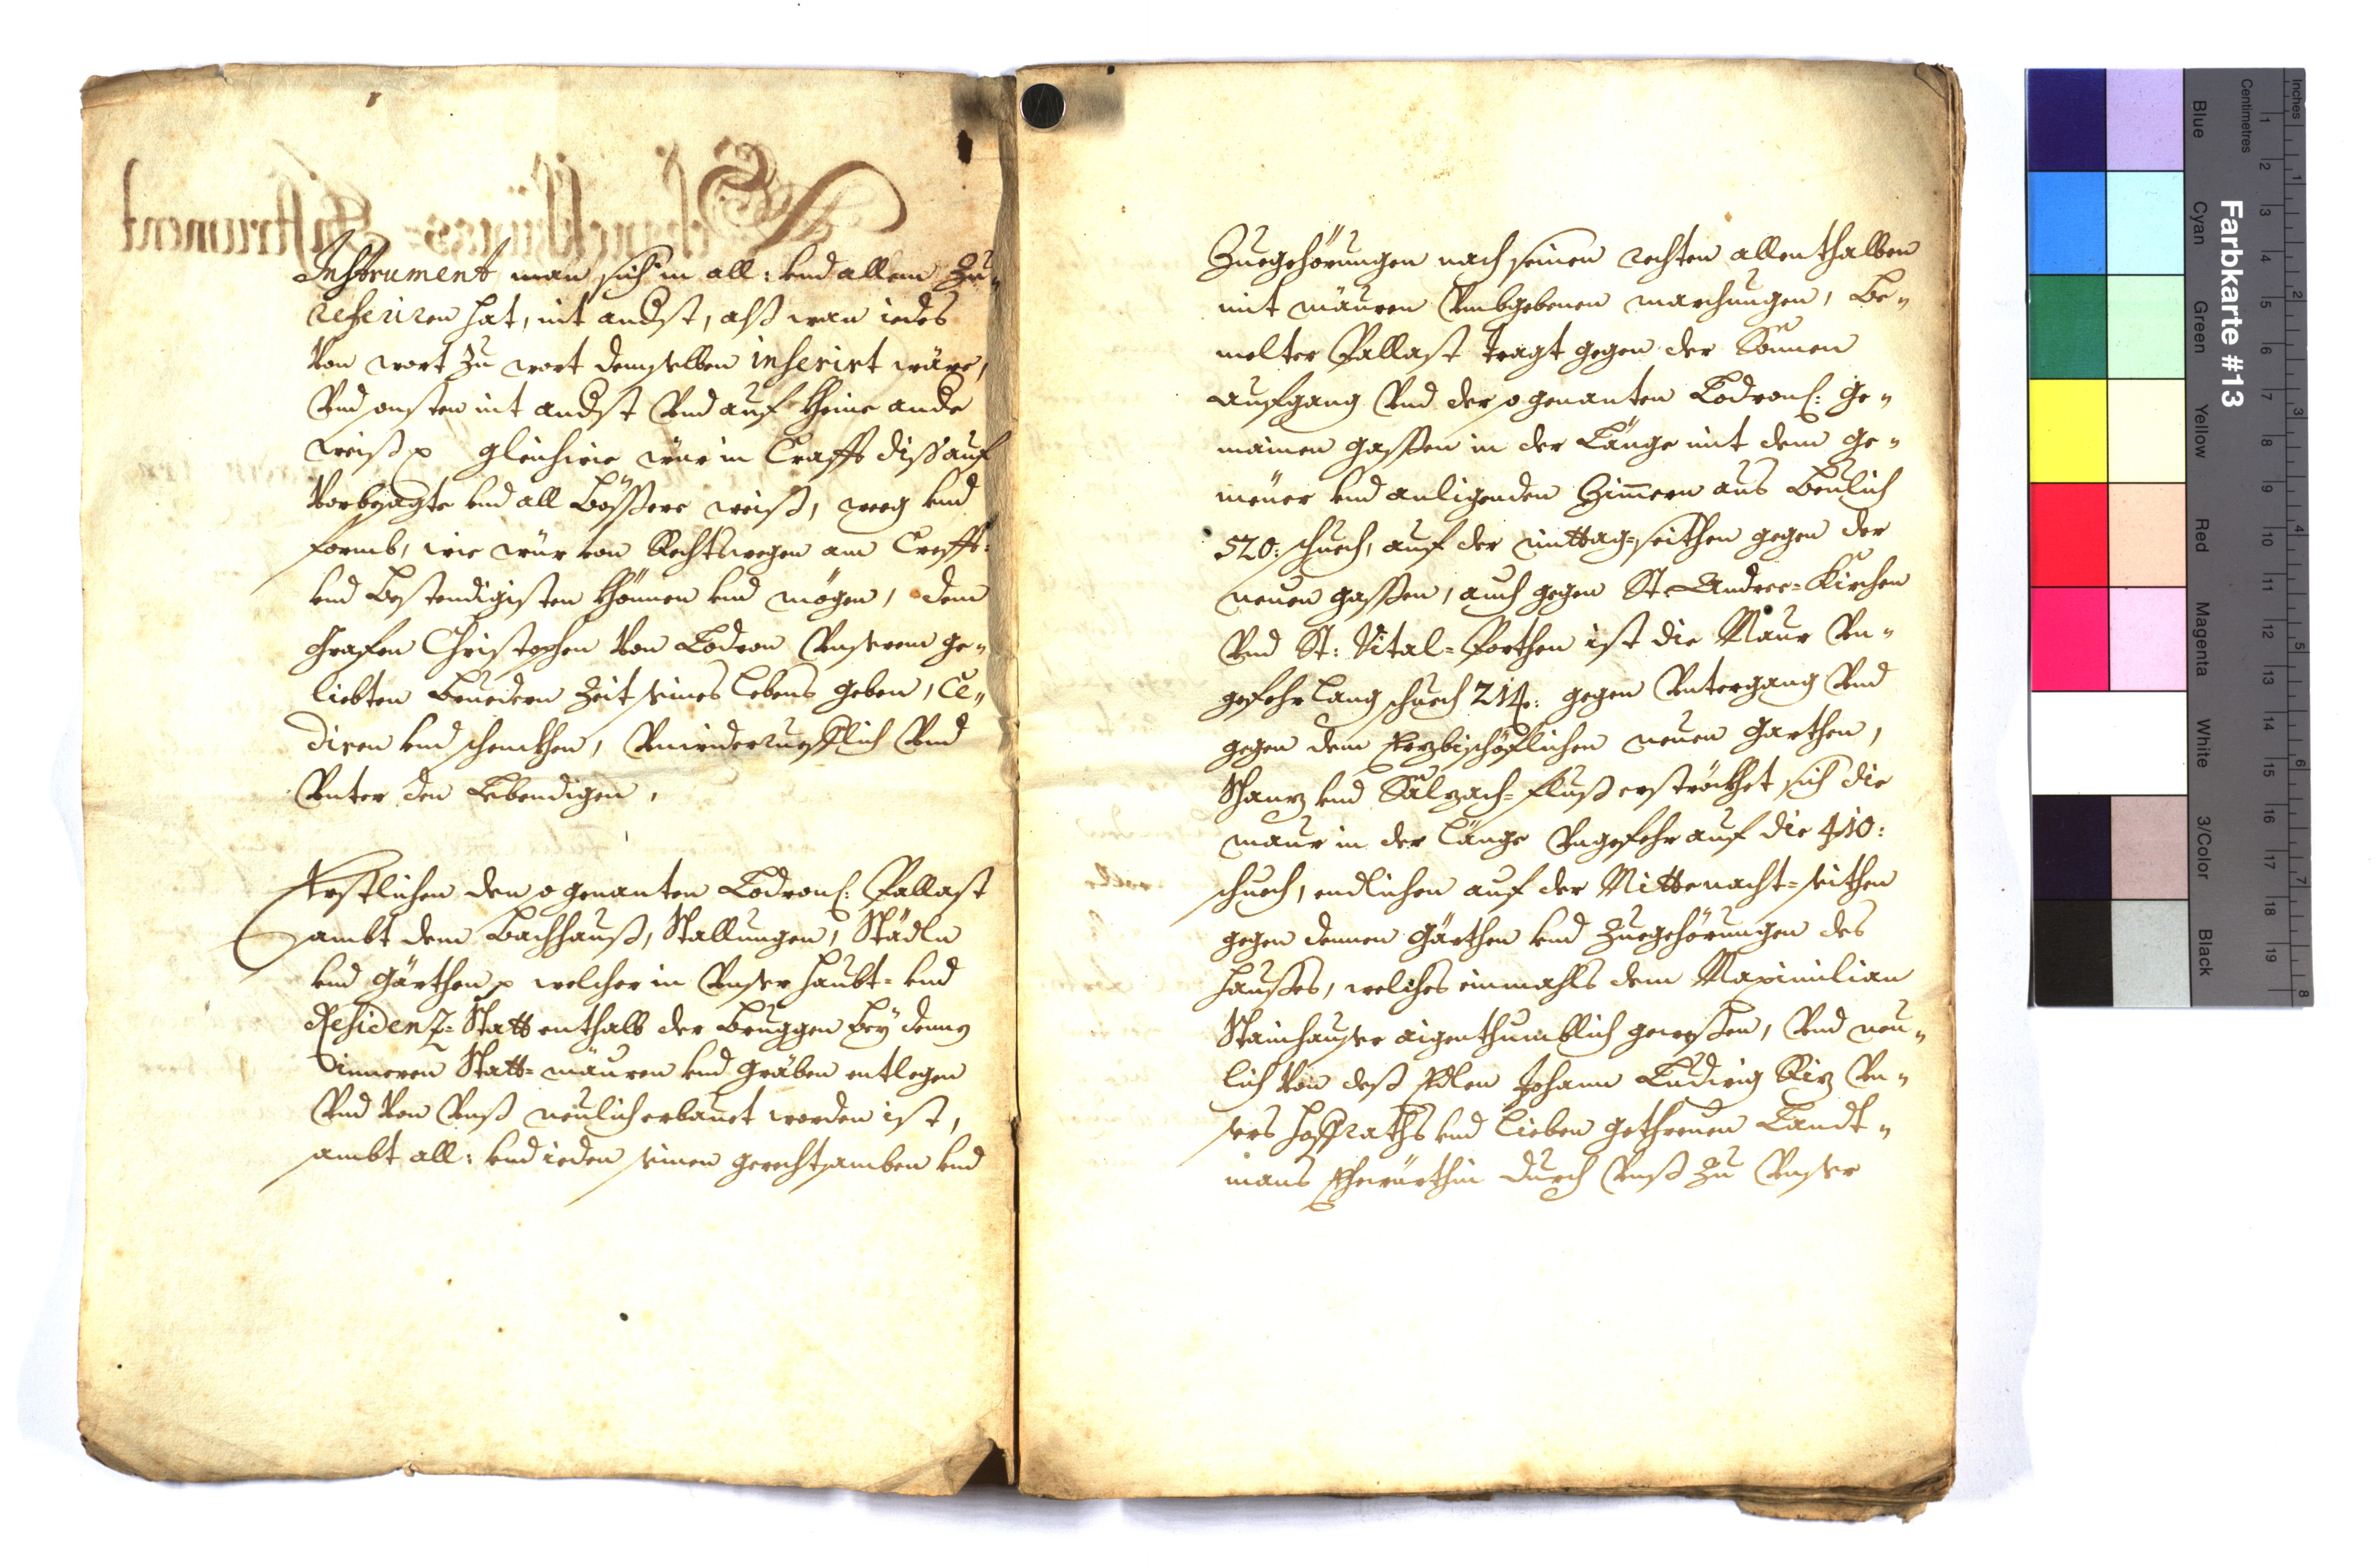 Instrument man sich in all: und allem Zu„
referiren hat, nit anderst, alß wan iedes
Von wort zu wort demselben inserirt wäre,
Und sonsten nit anderst Und auf kheine andere
weiß p gleichwie wür in Crafft diß auf
Vorbesagte und all bössere weiß, weeg und
formb, wie wür von Rechtswegen am Crefft:
und bestendigisten khönnen und mögen, dem
Grafen Christophen Von Lodron Unserem ge„
liebten Bruedern Zeit seines lebens geben, Ce„
diren und schenckhen, Unwiderruefflich Und
Unter den Lebendigen,
Erstlichen den sogenanten Lodron: Pallast
sambt dem Bachhauß, Stallungen, Städln
und gärthen p welcher in Unser Haubt= und
Residenz= Statt enthalb der bruggen beÿ denen
inneren Statt= mäuren und gräben entlegen
Und Von Unß neulich erbauet worden ist,
sambt all: und ieden seinen gerechtsamben und
Zuegehörungen nach seinen rechten allenthalben
mit mäuren Umbgebenen marchungen, be„
melter Pallast tragt gegen der Sonnen
aufgang Und der sogenanten Lodron: ge„
mainen gassen in der Länge mit dem ge„
meüer und anligenden Zimmern aus beulich
520: schuech, auf der mittag=seithen gegen der
neuen gassen, auch gegen St: Andree=Kirchen
Und St: Vital=Porthen ist die Maur Un„
gefehr lang schuech 214: gegen Untergang Und
gegen dem Erzbischöflichen neuen garthen,
Schanz und Salzach=fluß erströckhet sich die
maur in der länge Ungefehr auf die 410:
schuech, endlichen auf der Mittenacht=seithen
gegen denen gärthen und Zuegehörungen des
Haußes, welches einmahls dem Maximilian
Stainhauser aigenthumblich gewesen, Und neu„
lich Von deß Edlen Johann Ludwig Riz Un„
sers hoffraths und lieben gethreuen Landt„
mans Ehewürthin durch Unß zu Unser
Schanckhungs= Instrument
Farbkarte #13
Inches
Centimetres
1
2
3
4
5
6
7
8
9
10
11
12
13
14
15
16
17
18
19
1
2
3
4
5
6
7
8
Blue
Cyan
Green
Yellow
Red
Magenta
White
3/Color
Black